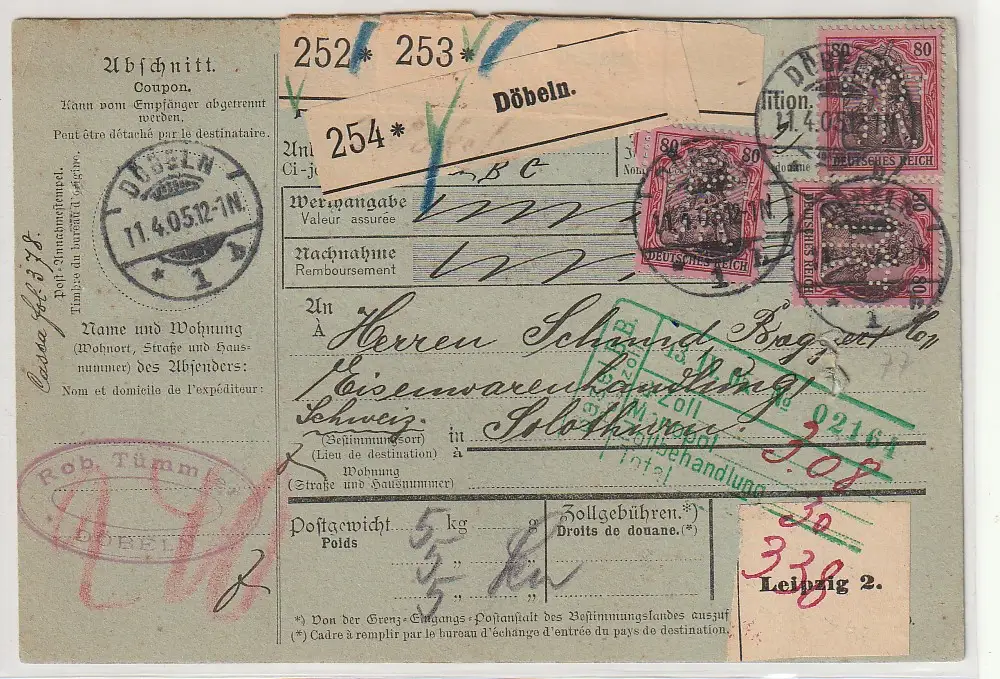 Abschnitt.
Coupon.
Kann vom Empfänger abgetrennt
werden.
Peut être détaché par le destinataire.
Post-Annahmestempel.
Timbre du bureau d'origine.
DÖBELN
11.4.05.12-1N
* 1 b
Cassa fol. 378.
Name und Wohnung
(Wohnort, Straße und Haus-
nummer) des Absenders:
Nom et domicile de l'expéditeur:
Rob. Tümmler
DÖBELN
252* 253*
254* Döbeln.
B C
Wertangabe
Valeur assurée
Nachnahme
Remboursement
80 80
DEUTSCHES REICH
80 80
DEUTSCHES REICH
80
DEUTSCHES REICH
DÖBELN
11.4.05.12-1N
11.4.05.12-1N
* 1
1
An
À
Herren Schmid
Eisenwarenhandlung
Schweiz.
(Bestimmungsort) in Solothurn
(Lieu de destination) à
Wohnung
(Straße und Hausnummer)
№ 02161
Zoll
Monopol
Zollbehandlung
Total
3.08
30
338
77
Postgewicht 5 kg g
Poids 5 " "
5 " "
Zollgebühren.*)
Droits de douane.(*)
Leipzig 2.
*) Von der Grenz-Eingangs-Postanstalt des Bestimmungslandes auszuf
(*) Cadre à remplir par le bureau d'échange d'entrée du pays de destination.